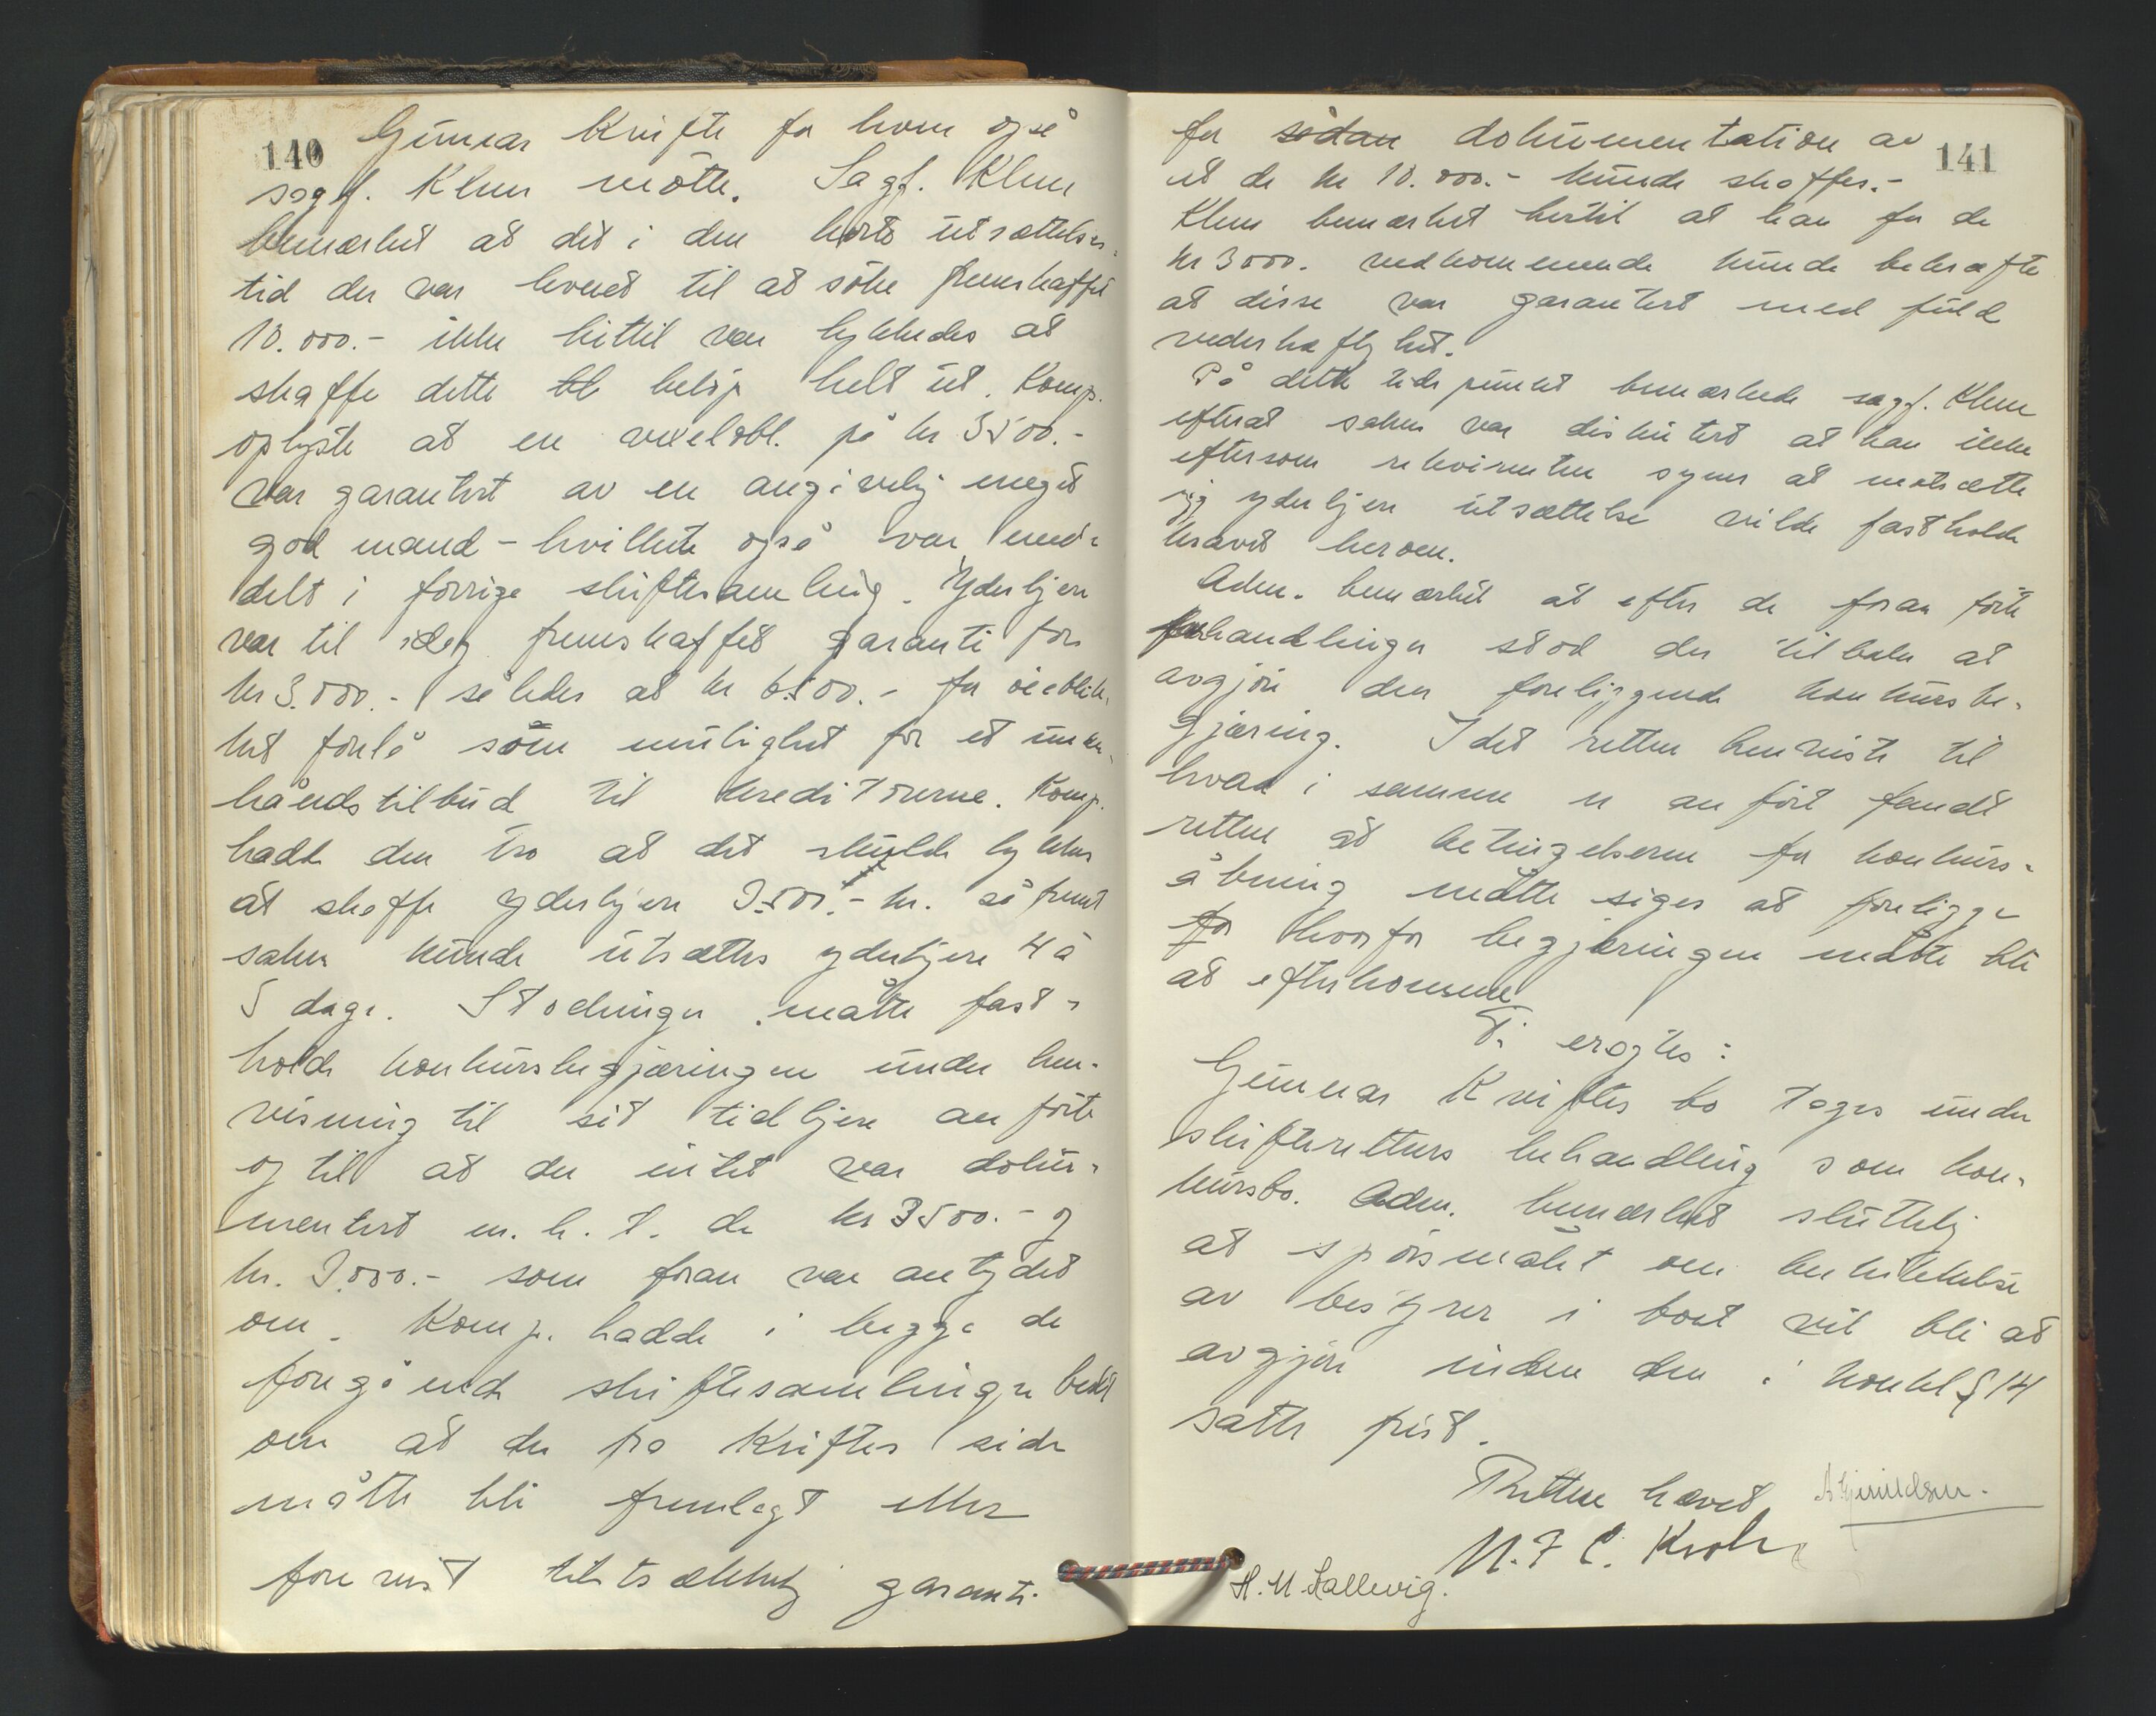 140
Gunnar Kvifte for hvem også
sagf. Klem møtte. Sagf. Klem
bemærket at det i den korte utsættelses-
tid der var levnet til at søke fremskaffet
10.000.- ikke hittil var lykkedes at
skaffe dette beløp helt ut. Komp.
oplyste at en vexelobl. på kr 3500.-
var garantert av en angivelig meget
god mand - hvilket også var med-
delt i forrige skiftesamling. Yderligere
var til idag fremskaffet garanti for
kr 3.000.- således at kr 6500.- for øieblik-
ket forelå som mulighet for et under-
håndstilbud til kreditorerne. Komp.
hadde den tro at det skulde lykkes
at skaffe yderligere 3.500.- kr. såfremt
saken kunde utsættes yderligere 4 à
5 dage. Stockinger måtte fast-
holde konkursbegjæringen under hen-
visning til sit tidligere anførte
og til at der intet var doku-
mentert m.h.t. de kr 3500.- og
kr. 3000.- som foran var antydet
om. Komp. hadde i begge de
foregående skiftesamlinger bedt
om at der fra Kviftes side
måtte bli fremlagt eller
forevist tilstrækkelig garanti
141
for sådan dokumentation av
at de kr 10.000.- kunde skaffes.-
Klem bemærket hertil at han for de
kr 3000. vedkommende kunde bekræfte
at disse var garantert med fuld
vederhæftighet.
På dette tidspunkt bemærkede sagf. Klem
efterat saken var diskutert at han ikke
eftersom rekvirenten synes at motsætte
sig yderligere utsættelse vilde fastholde
kravet herom.
Adm. bemærket at efter de foran førte
forhandlinger stod der tilbake at
avgjøre den foreliggende konkursbe-
gjæring. Idet retten henviste til
hvad i sammen er anført fandt
retten at betingelserne for konkurs-
åbning måtte siges at foreligge
for hvorfor begjæringen måtte bli
at efterkomme
Ti eragtes:
Gunnar Kviftes bo tages under
skifterettens behandling som kon-
kursbo. Adm. bemærket sluttelig
at spørsmålet om beskikkelse
av bestyrer i boet vil bli at
avgjøre inden den i konkl § 14
satte frist.
Retten hævet
N. F. C. Krohn
H. M. Hallevig.